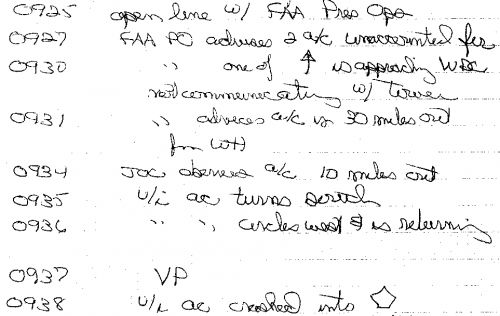 0925 open line w/ FAA Pres Ops
0927 FAA PO advises 2 a/c unaccounted for
0930 " one of ↑ is approachg WDC
not communicating w/ Tower
0931 " advises a/c is 30 miles out
fm WH
0934 JOC observes a/c 10 miles out
0935 u/i ac turns South
0936 " " circles west & is returning
0937 VP
0938 u/i ac crashed into ⬠